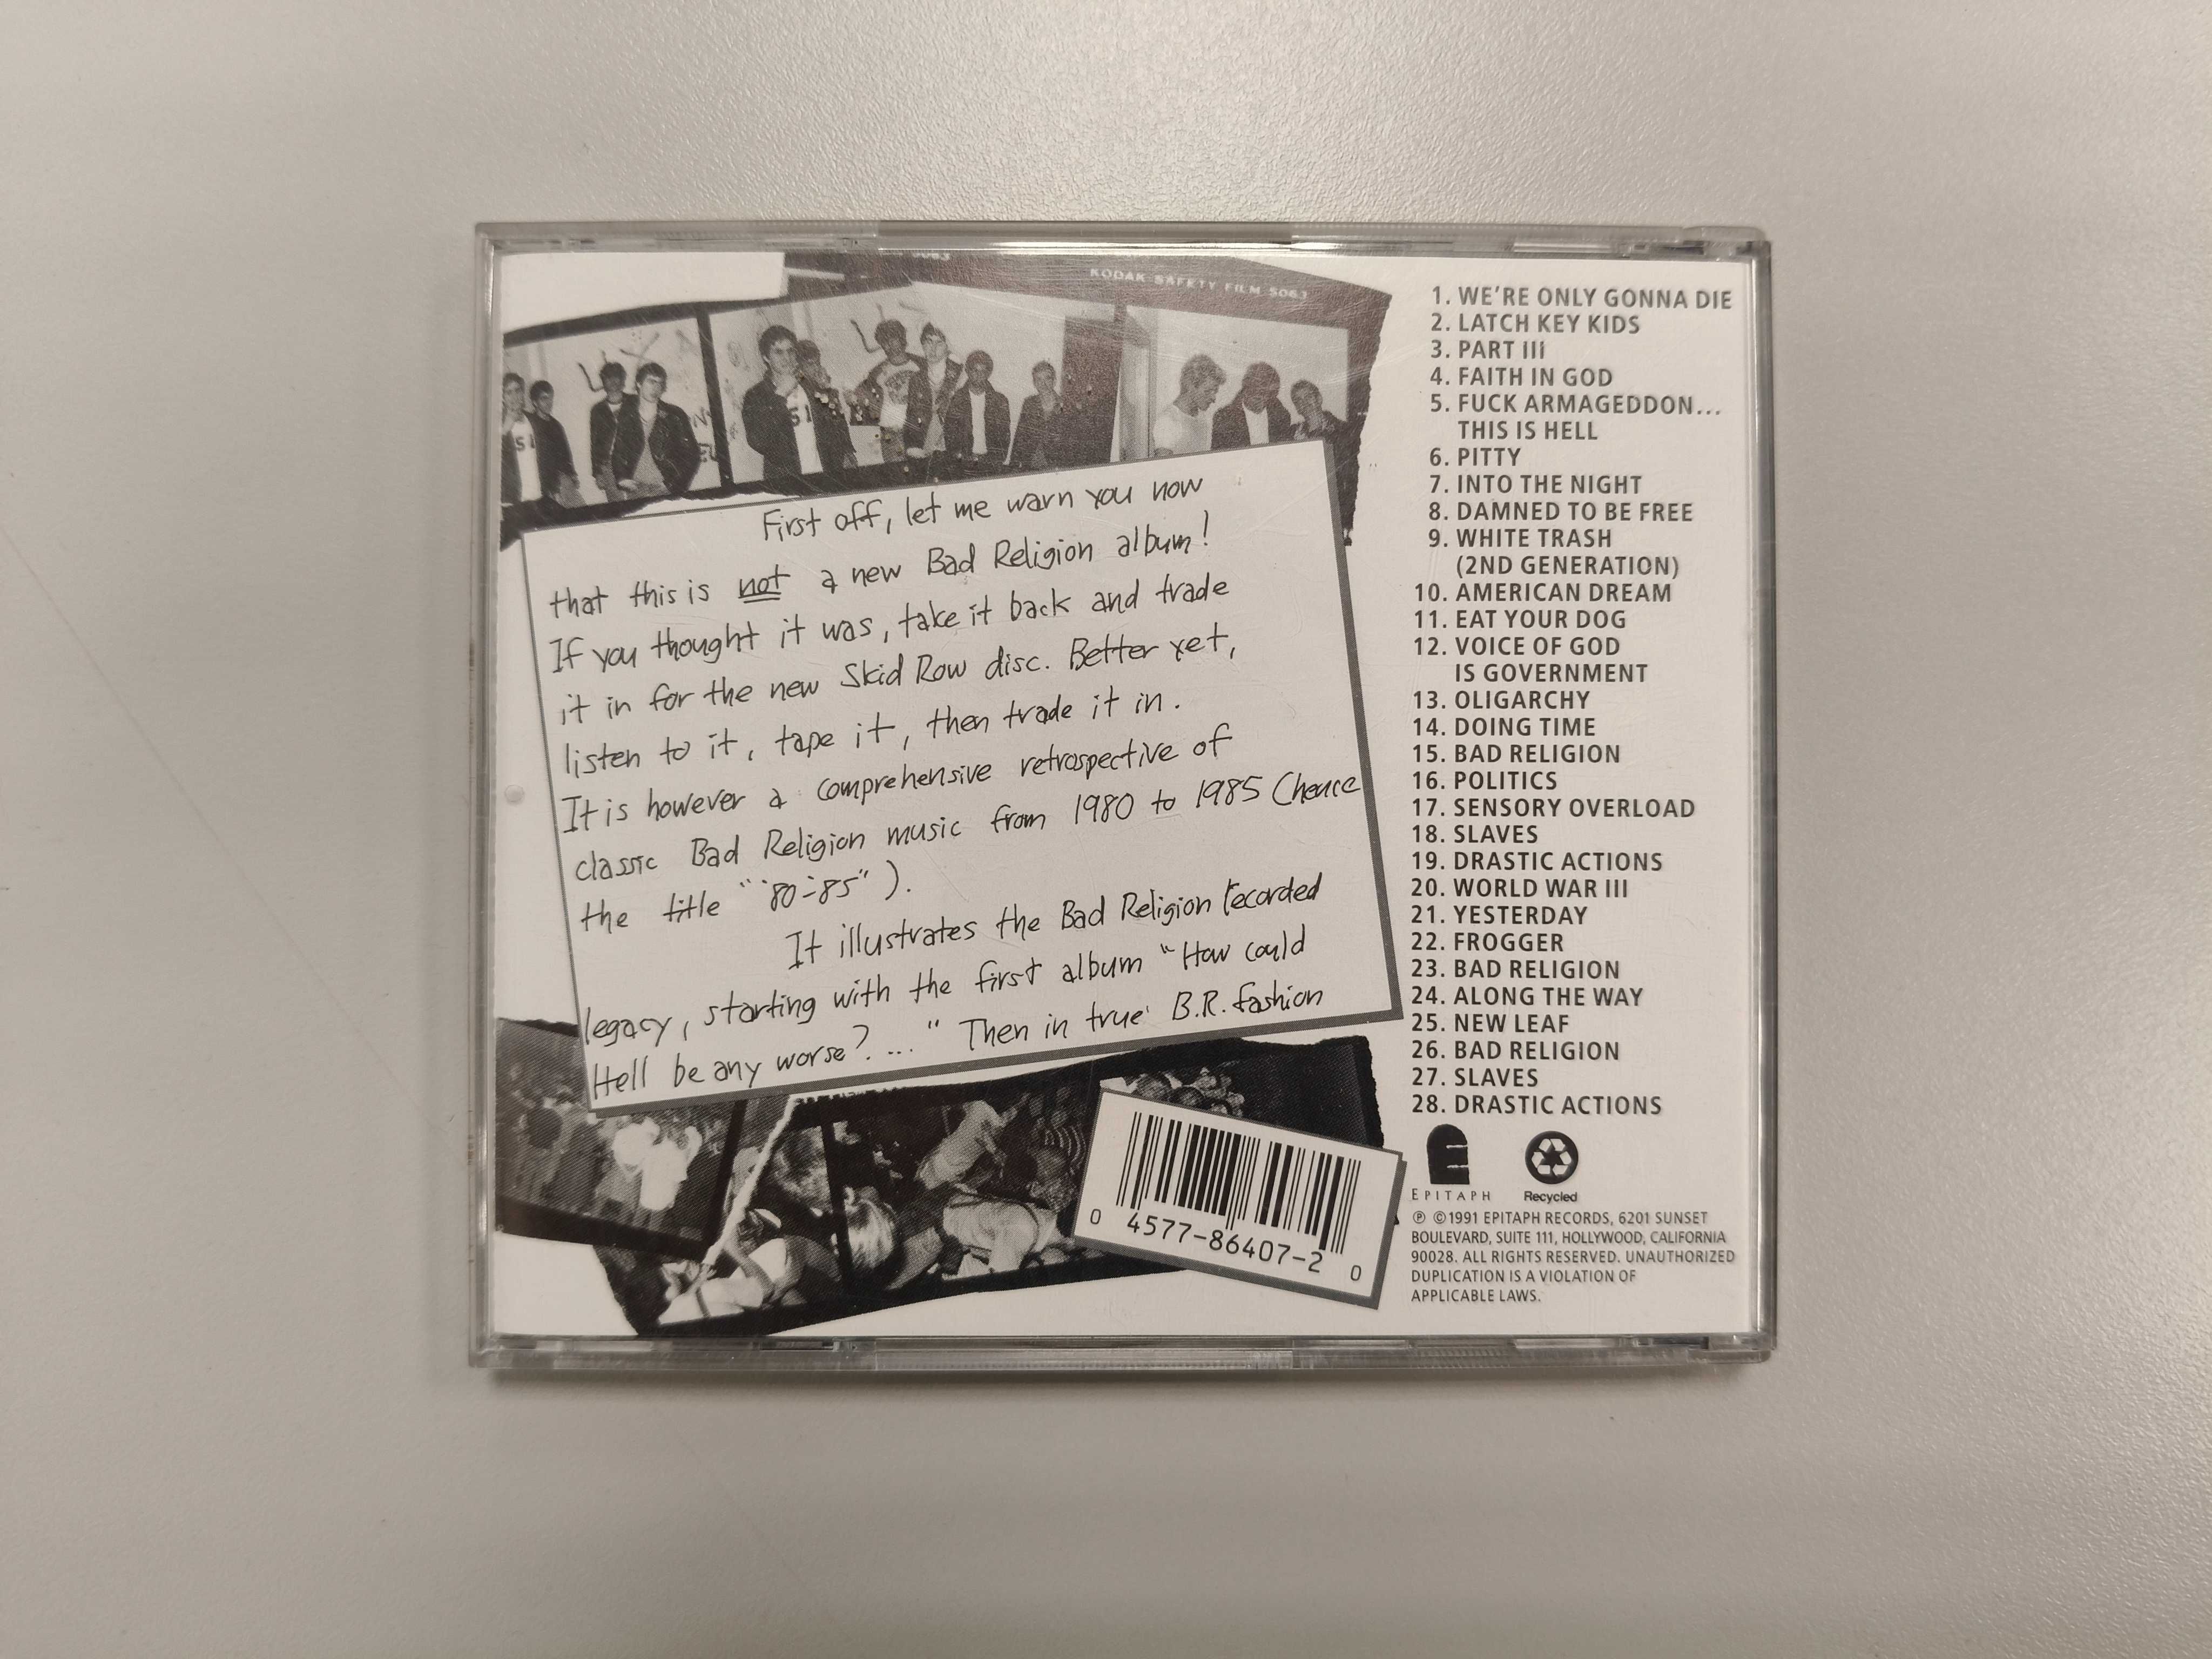 5063
KODAK SAFETY FILM 5063
First off, let me warn you now
that this is not a new Bad Religion album!
If you thought it was, take it back and trade
it in for the new Skid Row disc. Better yet,
listen to it, tape it, then trade it in.
It is however a comprehensive retrospective of
classic Bad Religion music from 1980 to 1985 (hence
the title "'80-'85").
It illustrates the Bad Religion recorded
legacy, starting with the first album "How could
Hell be any worse?..." Then in true B.R. fashion
1. WE'RE ONLY GONNA DIE
2. LATCH KEY KIDS
3. PART III
4. FAITH IN GOD
5. FUCK ARMAGEDDON...
THIS IS HELL
6. PITTY
7. INTO THE NIGHT
8. DAMNED TO BE FREE
9. WHITE TRASH
(2ND GENERATION)
10. AMERICAN DREAM
11. EAT YOUR DOG
12. VOICE OF GOD
IS GOVERNMENT
13. OLIGARCHY
14. DOING TIME
15. BAD RELIGION
16. POLITICS
17. SENSORY OVERLOAD
18. SLAVES
19. DRASTIC ACTIONS
20. WORLD WAR III
21. YESTERDAY
22. FROGGER
23. BAD RELIGION
24. ALONG THE WAY
25. NEW LEAF
26. BAD RELIGION
27. SLAVES
28. DRASTIC ACTIONS
0 4577-86407-2 0
EPITAPH
Recycled
℗ ©1991 EPITAPH RECORDS, 6201 SUNSET
BOULEVARD, SUITE 111, HOLLYWOOD, CALIFORNIA
90028. ALL RIGHTS RESERVED. UNAUTHORIZED
DUPLICATION IS A VIOLATION OF
APPLICABLE LAWS.